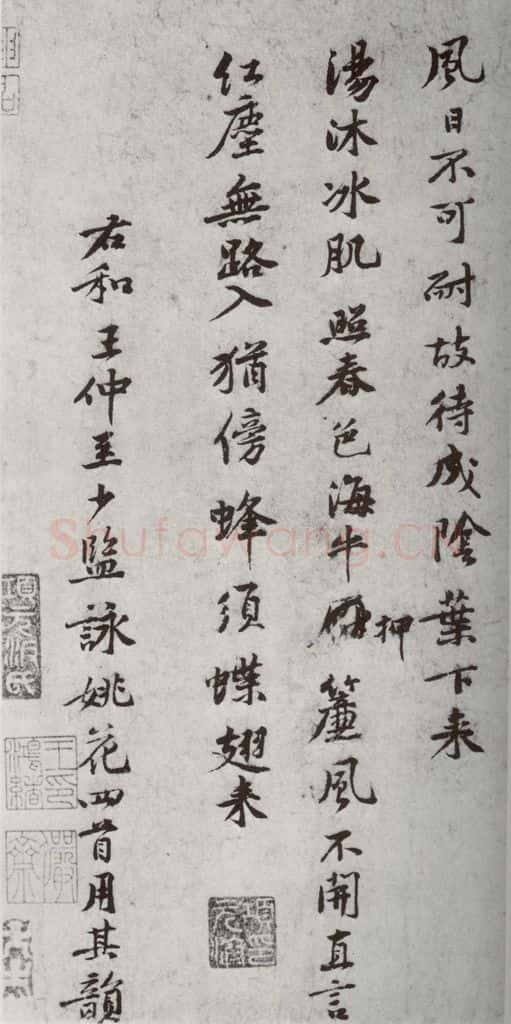 風日不可耐故待成陰葉下来
湯沐冰肌照春色海牛押簾風不開直言
红塵無路入猶傍蜂须蝶翅来
右和王仲至少監詠姚花四首用其韻
Shufawang.cn